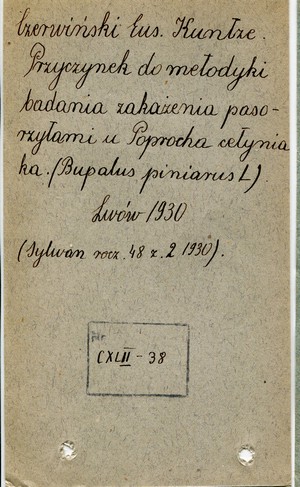 Czerwiński Eus. Kuntze.
Przyczynek do metodyki
badania zakażenia paso-
rzytami u Poprocha cetynia
ka. (Bupalus piniarus L).
Lwów 1930
(Sylwan rocz. 48 z. 2 1930).
Nr
CXLII - 38